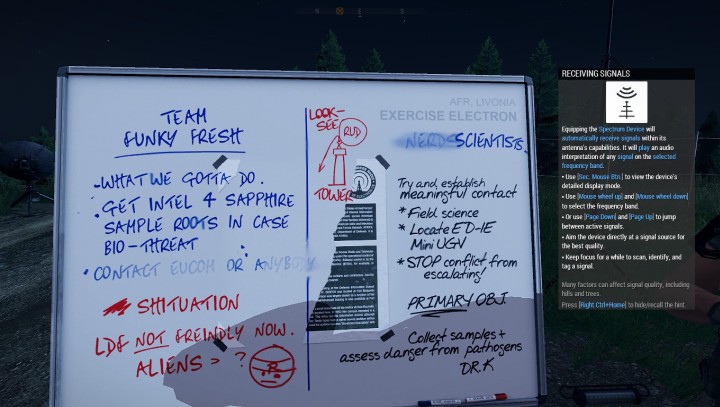 N
E
S
TEAM
FUNKY FRESH
-WHAT WE GOTTA DO.
-GET INTEL 4 SAPPHIRE
SAMPLE ROOTS IN CASE
BIO-THREAT
-CONTACT EUCOM OR ANYBODY
SHITUATION
LDF NOT FREINDLY NOW.
ALIENS = ?
LOOK-
SEE
RUD
TOWER
AFR, LIVONIA
EXERCISE ELECTRON
NERDS SCIENTISTS.
Try and establish
meaningful contact
* Field science
* Locate ED-1E
Mini UGV
* STOP conflict from
escalating!
PRIMARY OBJ
Collect samples +
assess danger from pathogens
DR.K
RECEIVING SIGNALS
Equipping the Spectrum Device will
automatically receive signals within its
antenna's capabilities. It will play an audio
interpretation of any signal on the selected
frequency band.
• Use [Sec. Mouse Btn.] to view the device's
detailed display mode.
• Use [Mouse wheel up] and [Mouse wheel down]
to select the frequency band.
• Or use [Page Down] and [Page Up] to jump
between active signals.
• Aim the device directly at a signal source for
the best quality.
• Keep focus for a while to scan, identify, and
tag a signal.
Many factors can affect signal quality, including
hills and trees.
Press [Right Ctrl+Home] to hide/recall the hint.